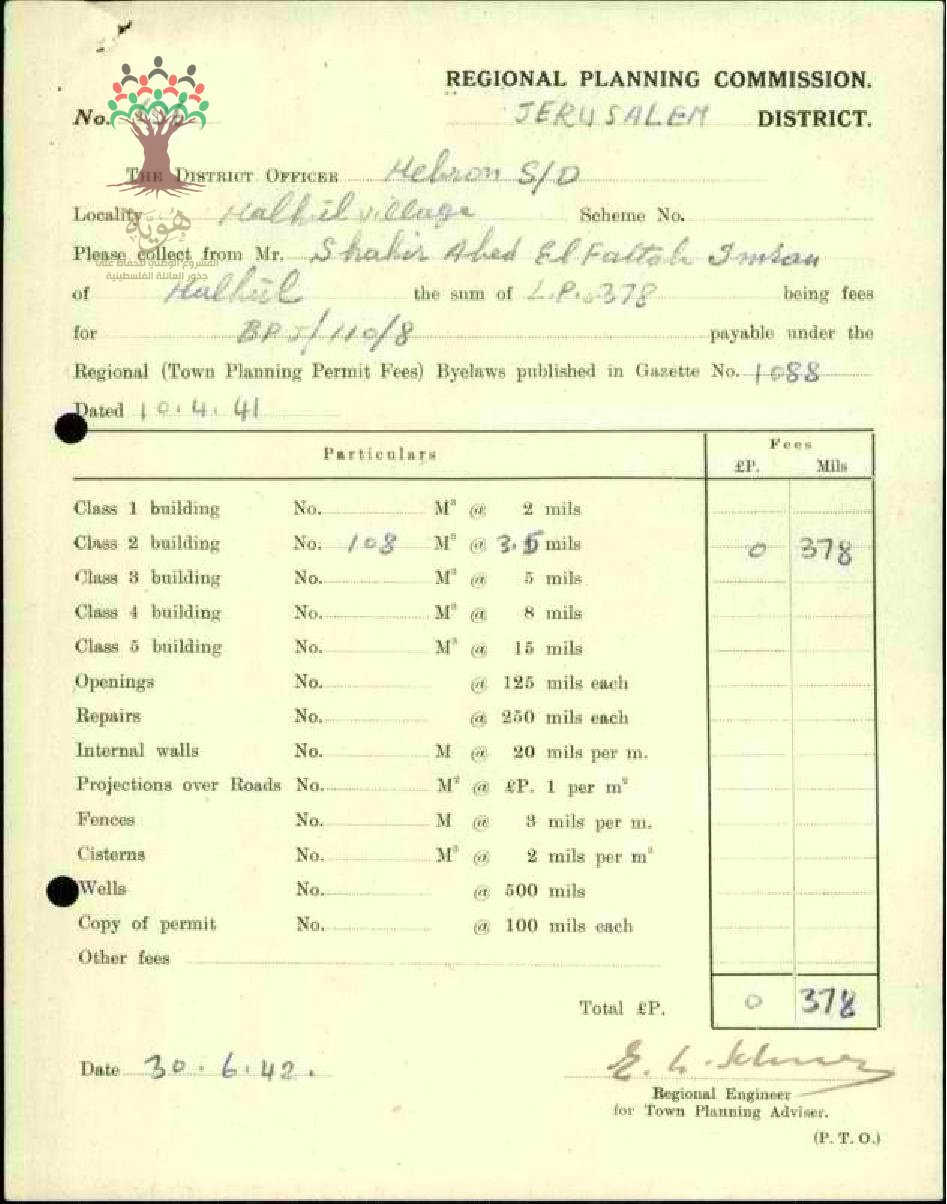 REGIONAL PLANNING COMMISSION.
No. JERUSALEM DISTRICT.
THE DISTRICT OFFICER Hebron S/D
Locality Halhul village Scheme No.
هوية
Please collect from Mr. Shakir Abed El Fattah Imran
المشروع الوطني للحفاظ على
جذور العائلة الفلسطينية
of Halhul the sum of L.P. 0.378 being fees
for BPJ/110/8 payable under the
Regional (Town Planning Permit Fees) Byelaws published in Gazette No. 1088
Dated 10.4.41
Particulars Fees
£P. Mils
Class 1 building No. M³ @ 2 mils
Class 2 building No. 108 M³ @ 3.5 mils 0 378
Class 3 building No. M³ @ 5 mils
Class 4 building No. M³ @ 8 mils
Class 5 building No. M³ @ 15 mils
Openings No. @ 125 mils each
Repairs No. @ 250 mils each
Internal walls No. M @ 20 mils per m.
Projections over Roads No. M² @ £P. 1 per m²
Fences No. M @ 3 mils per m.
Cisterns No. M³ @ 2 mils per m³
Wells No. @ 500 mils
Copy of permit No. @ 100 mils each
Other fees
Total £P. 0 378
Date 30.6.42.
Regional Engineer
for Town Planning Adviser.
(P. T. O.)